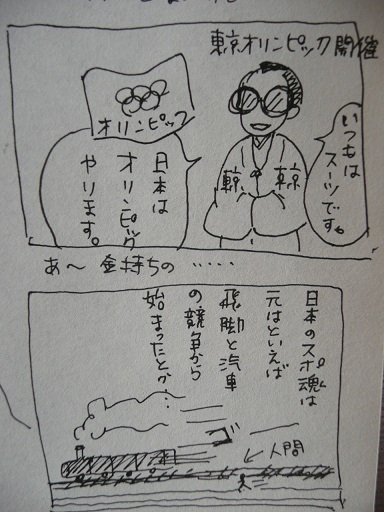 東京オリンピック開催
いつもは
スーツです。
東京
東京
オリンピック
日本は
オリンピック
やります。
あ〜金持ちの……
日本のスポ魂は
元はといえば
飛脚と汽車
の競争から
始まったとか…
人間